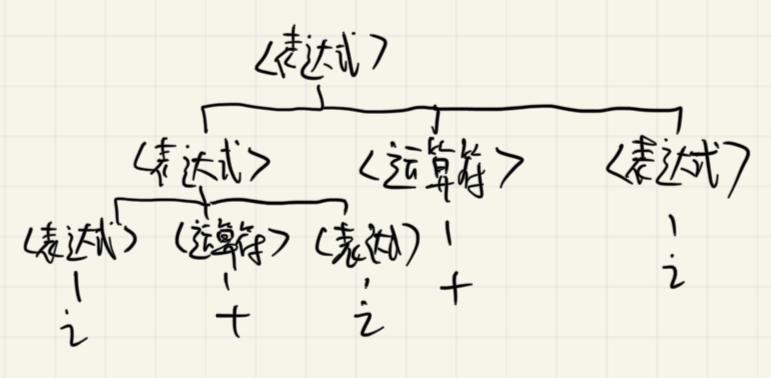 <表达式>
<表达式> <运算符> <表达式>
<表达式> <运算符> <表达式> + i
i + i